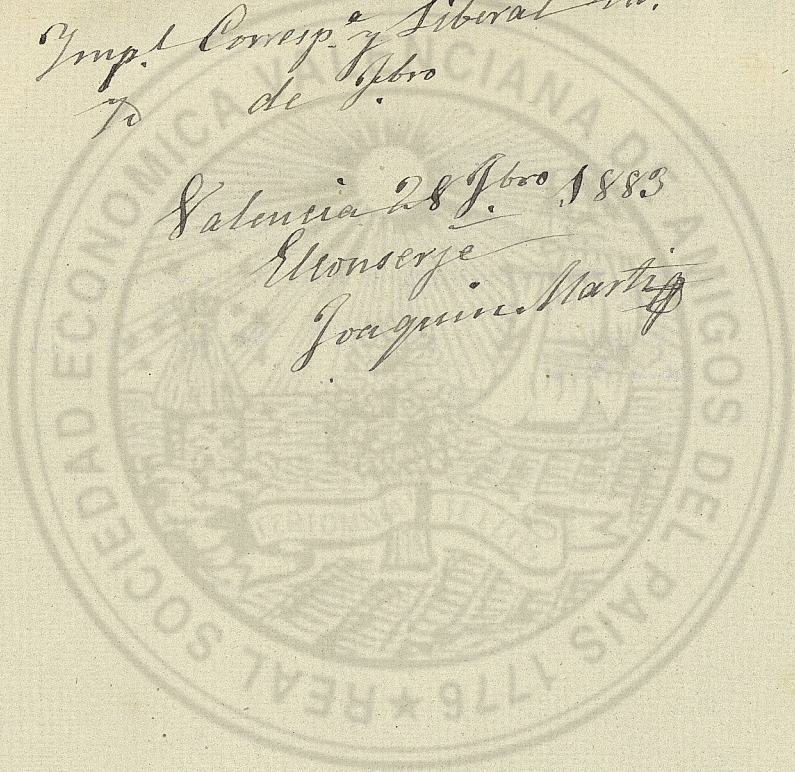 Imp.l Corresp.a y Liberal
de 7bro
Valencia 28 7bro 1883
El conserje
Joaquin Marti
REAL SOCIEDAD ECONOMICA VALENCIANA DE AMIGOS DEL PAIS 1776